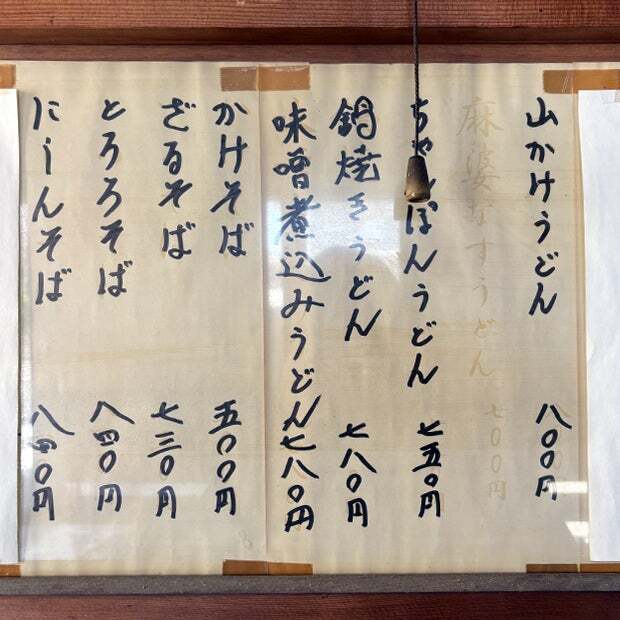 山かけうどん 八〇〇円
麻婆なすうどん 七〇〇円
ちゃんぽんうどん 七五〇円
鍋焼きうどん 七八〇円
味噌煮込みうどん 七八〇円
かけそば 五〇〇円
ざるそば 七三〇円
とろろそば 八四〇円
にしんそば 八四〇円